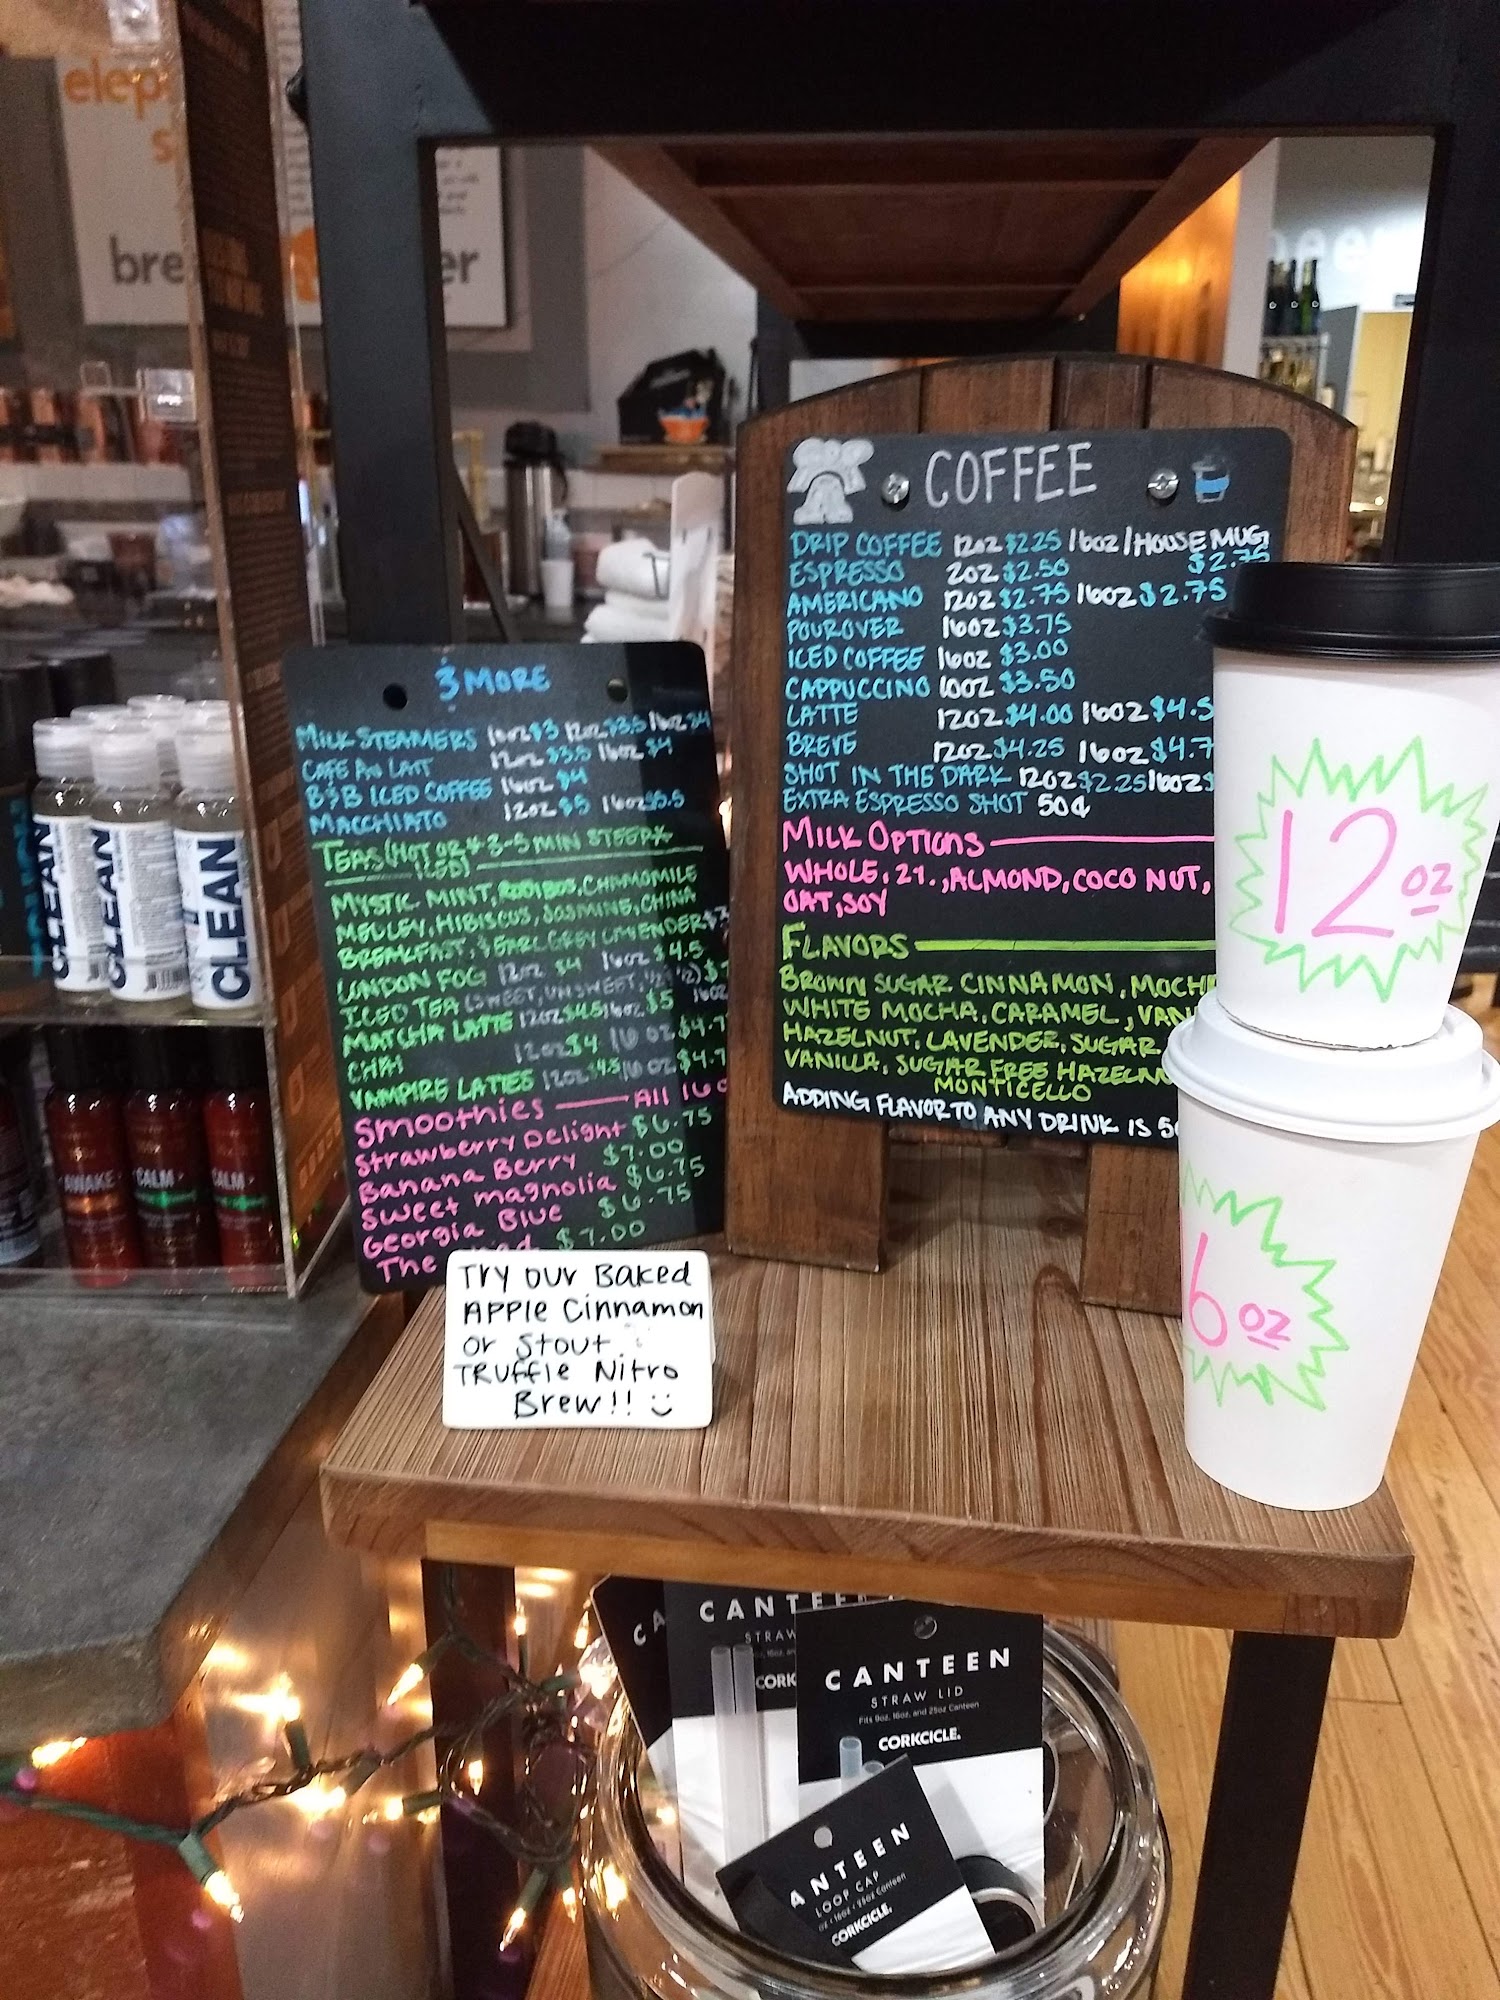 COFFEE
DRIP COFFEE 12OZ $2.25 16OZ/HOUSE MUG
$2.75
ESPRESSO 2OZ $2.50
AMERICANO 12OZ $2.75 16OZ $2.75
POUROVER 16OZ $3.75
ICED COFFEE 16OZ $3.00
CAPPUCCINO 10OZ $3.50
LATTE 12OZ $4.00 16OZ $4.5
BREVE 12OZ $4.25 16OZ $4.7
SHOT IN THE DARK 12OZ $2.25 16OZ $
EXTRA ESPRESSO SHOT 50¢
MILK OPTIONS
WHOLE, 2%, ALMOND, COCO NUT,
OAT, SOY
FLAVORS
BROWN SUGAR CINNAMON, MOCH
WHITE MOCHA, CARAMEL, VAN
HAZELNUT, LAVENDER, SUGAR
VANILLA, SUGAR FREE HAZELN
MONTICELLO
ADDING FLAVOR TO ANY DRINK IS 5
& MORE
MILK STEAMERS $3 12OZ $3.5 16OZ $4
CAFE AU LAIT 12OZ $3.5 16OZ $4
B&B ICED COFFEE 16OZ $4
MACCHIATO 12OZ $5 16OZ $5.5
TEAS (HOT OR * 3-5 MIN STEEP*
ICED)
MYSTIC MINT, ROOIBOS, CHAMOMILE
MEDLEY, HIBISCUS, JASMINE, CHINA
BREAKFAST, & EARL GREY LAVENDER $3
LONDON FOG 12OZ $4 16OZ $4.5
ICED TEA (SWEET, UNSWEET, 1/2 & 1/2) $
MATCHA LATTE 12OZ $4.5 16OZ $5 16OZ
CHAI 12OZ $4 16 OZ $4.7
VAMPIRE LATTES 12OZ $4.5 16 OZ $4.7
Smoothies All 16 O
Strawberry Delight $6.75
Banana Berry $7.00
Sweet magnolia $6.75
Georgia Blue $6.75
The $7.00
Try our Baked
Apple Cinnamon
or Stout
Truffle Nitro
Brew!! :)
12 oz
6 oz
CLEAN
CLEAN
CLEAN
AWAKE
CALM
CALM
elep
s
bre
er
beer
CANTEEN
STRAW
CORKC
CANTEEN
STRAW LID
Fits 9oz, 16oz, and 25oz Canteen
CORKCICLE.
ANTEEN
LOOP CAP
CORKCICLE.